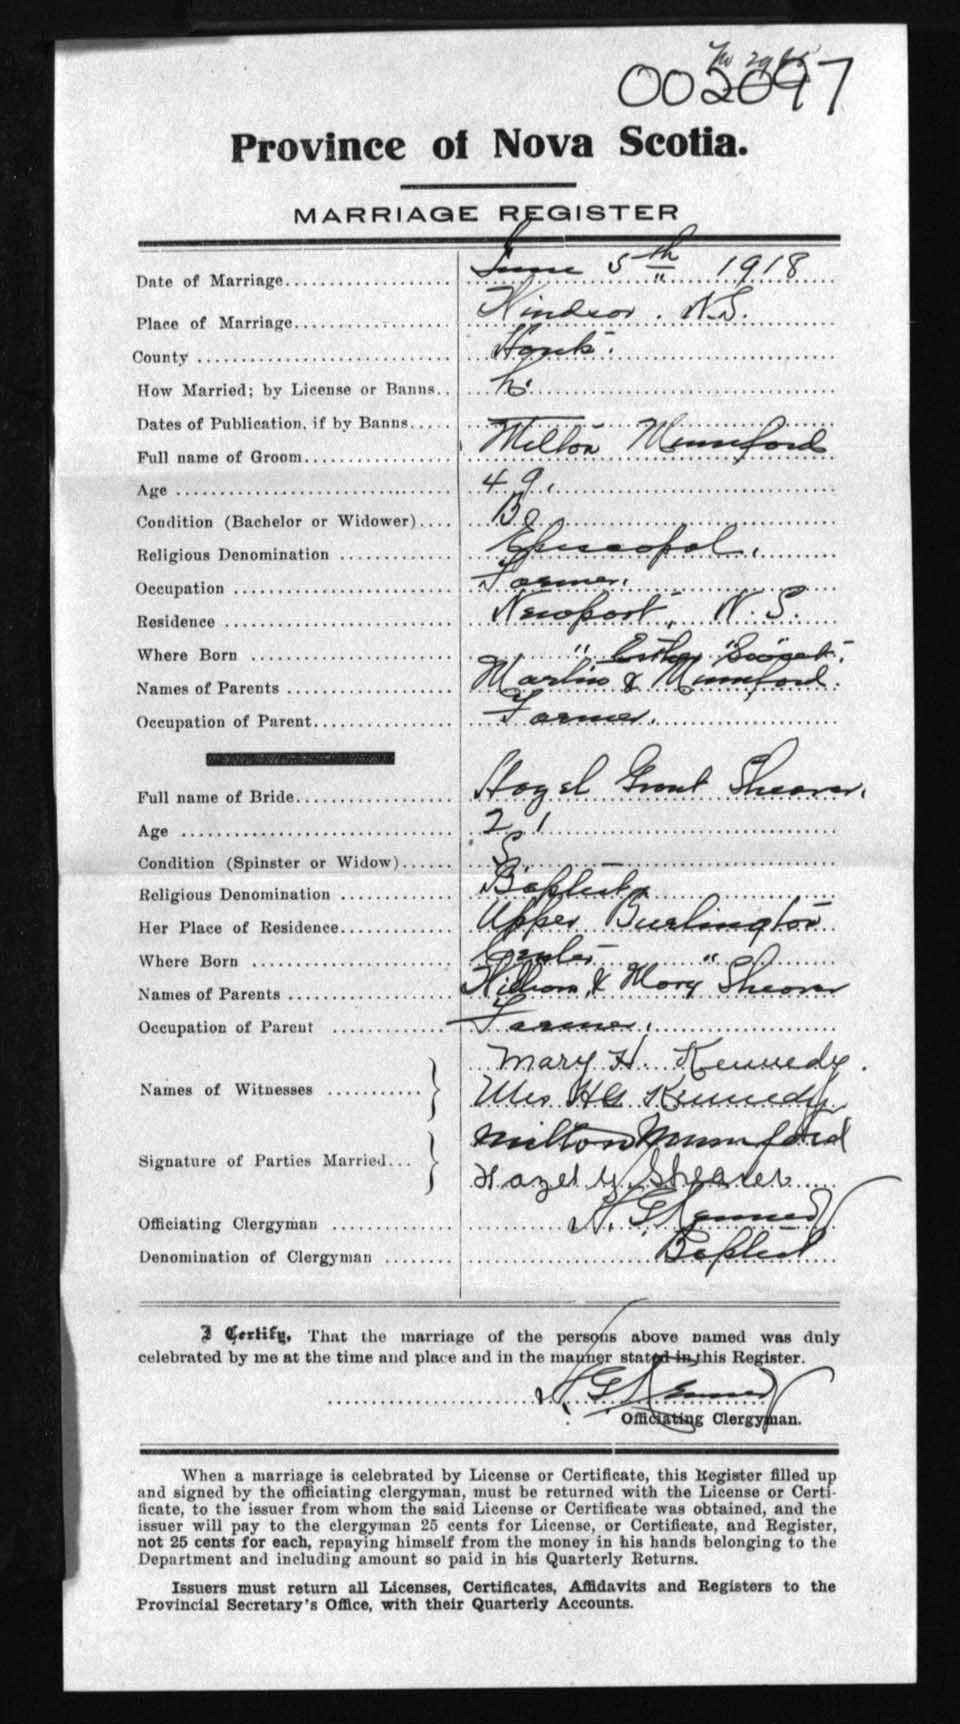 002097
Province of Nova Scotia.
MARRIAGE REGISTER
Date of Marriage June 5th 1918
Place of Marriage Windsor. N.S.
County Hants.
How Married; by License or Banns L.
Dates of Publication, if by Banns
Full name of Groom Milton Mumford
Age 49.
Condition (Bachelor or Widower) B.
Religious Denomination Episcopal.
Occupation Farmer.
Residence Newport, N.S.
Where Born "
Names of Parents Martin & Esther Mumford.
Occupation of Parent Farmer.
Full name of Bride Hazel Grant Shearer.
Age 21
Condition (Spinster or Widow) S.
Religious Denomination Baptist
Her Place of Residence Upper Burlington
Where Born "
Names of Parents William & Mary Shearer
Occupation of Parent Farmer.
Names of Witnesses Mary H. Kennedy.
Mrs HG Kennedy
Signature of Parties Married Milton Mumford
Hazel G. Shearer
Officiating Clergyman H. G. Kennedy
Denomination of Clergyman Baptist
I Certify, That the marriage of the persons above named was duly
celebrated by me at the time and place and in the manner stated in this Register.
H G Kennedy
Officiating Clergyman.
When a marriage is celebrated by License or Certificate, this Register filled up
and signed by the officiating clergyman, must be returned with the License or Certi-
ficate, to the issuer from whom the said License or Certificate was obtained, and the
issuer will pay to the clergyman 25 cents for License, or Certificate, and Register,
not 25 cents for each, repaying himself from the money in his hands belonging to the
Department and including amount so paid in his Quarterly Returns.
Issuers must return all Licenses, Certificates, Affidavits and Registers to the
Provincial Secretary's Office, with their Quarterly Accounts.